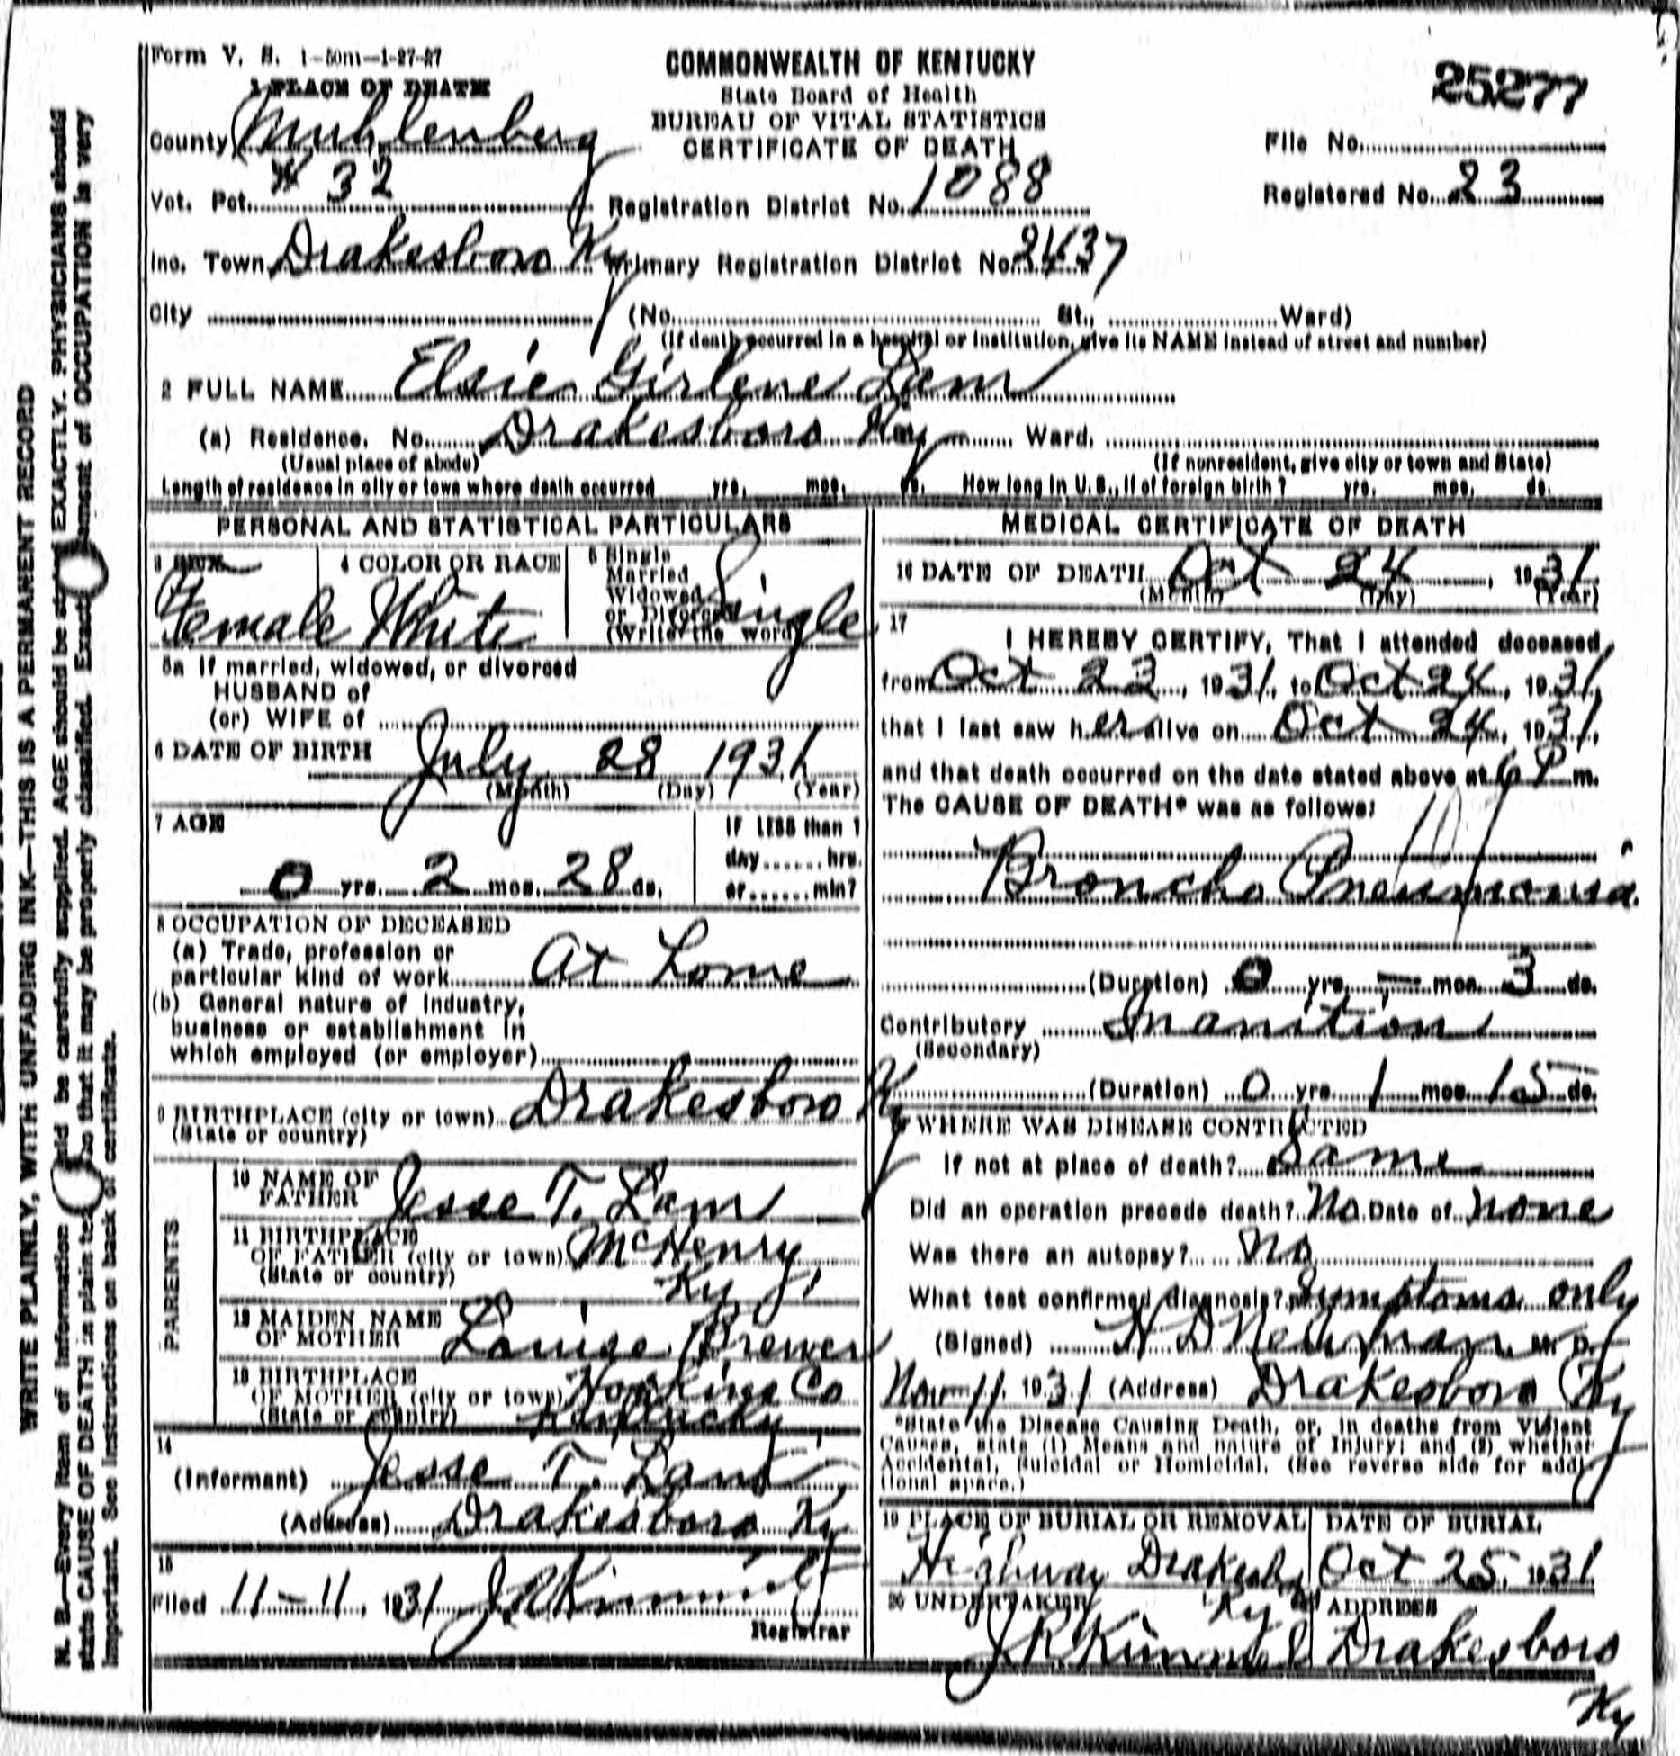 Form V. S. 1-50m-1-27-27
COMMONWEALTH OF KENTUCKY
State Board of Health
BUREAU OF VITAL STATISTICS
CERTIFICATE OF DEATH
25277
File No.
Registered No. 23
1 PLACE OF DEATH
County Muhlenberg
Vot. Pct. # 32
Registration District No. 1088
Inc. Town Drakesboro Ky
Primary Registration District No. 2437
City (No. St., Ward)
(If death occurred in a hospital or institution, give its NAME instead of street and number)
2 FULL NAME Elsie Girlene Lam
(a) Residence. No. Drakesboro Ky Ward.
(Usual place of abode) (If nonresident, give city or town and State)
Length of residence in city or town where death occurred yrs. mos. ds. How long in U. S., if of foreign birth? yrs. mos. ds.
PERSONAL AND STATISTICAL PARTICULARS
3 SEX Female
4 COLOR OR RACE White
5 Single
Married
Widowed
or Divorced
(Write the word) Single
5a If married, widowed, or divorced
HUSBAND of
(or) WIFE of
6 DATE OF BIRTH July 28 1931
(Month) (Day) (Year)
7 AGE
0 yrs. 2 mos. 28 ds.
IF LESS than 1
day ...... hrs.
or ...... min?
8 OCCUPATION OF DECEASED
(a) Trade, profession or
particular kind of work At Home
(b) General nature of industry,
business or establishment in
which employed (or employer)
9 BIRTHPLACE (city or town) Drakesboro Ky
(State or country)
PARENTS
10 NAME OF
FATHER Jesse T. Lam
11 BIRTHPLACE
OF FATHER (city or town) McHenry
(State or country) Ky
12 MAIDEN NAME
OF MOTHER Louise Brewer
13 BIRTHPLACE
OF MOTHER (city or town) Hopkins Co
(State or country) Kentucky
14
(Informant) Jesse T. Lam
(Address) Drakesboro Ky
15
Filed 11-11, 1931 J R Kimmel
Registrar
MEDICAL CERTIFICATE OF DEATH
16 DATE OF DEATH Oct 24, 1931
(Month) (Day) (Year)
17
I HEREBY CERTIFY, That I attended deceased
from Oct 23, 1931, to Oct 24, 1931,
that I last saw her alive on Oct 24, 1931,
and that death occurred on the date stated above at 6 P m.
The CAUSE OF DEATH* was as follows:
107
Broncho Pneumonia
(Duration) 0 yrs. - mos. 3 ds.
Contributory Inanition
(Secondary)
(Duration) 0 yrs. 1 mos. 15 ds.
WHERE WAS DISEASE CONTRACTED
If not at place of death? Same
Did an operation precede death? No Date of none
Was there an autopsy? No
What test confirmed diagnosis? Symptoms only
(Signed) H D Newman, M. D.
Nov 11, 1931 (Address) Drakesboro Ky
*State the Disease Causing Death, or, in deaths from Violent
Causes, state (1) Means and nature of Injury; and (2) whether
Accidental, Suicidal or Homicidal. (See reverse side for addi-
tional space.)
19 PLACE OF BURIAL OR REMOVAL DATE OF BURIAL
Highway Drakesboro Ky Oct 25, 1931
20 UNDERTAKER ADDRESS
J R Kimmel Drakesboro
Ky
WRITE PLAINLY, WITH UNFADING INK—THIS IS A PERMANENT RECORD
N. B.—Every item of information should be carefully supplied. AGE should be stated EXACTLY. PHYSICIANS should
state CAUSE OF DEATH in plain terms so that it may be properly classified. Exact statement of OCCUPATION is very
important. See instructions on back of certificate.